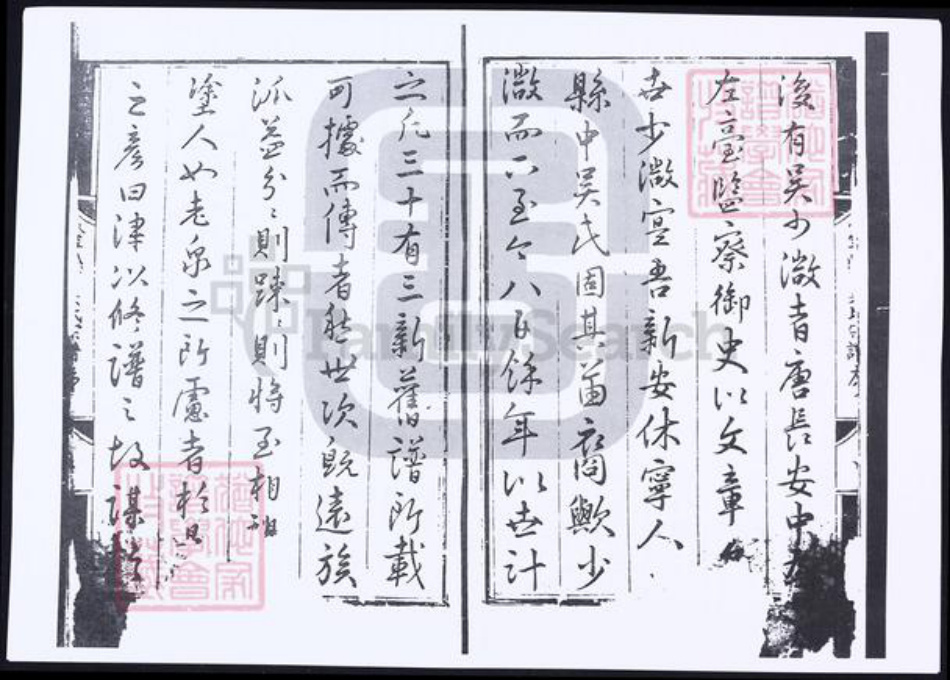 後有吴少微者唐長安中
左臺監察御史以文章
世少微寔吾新安休寧人
縣中吴氏固其苗裔歟少
微而下至今八百餘年以世計
之凡三十有三新舊譜所載
可據而傳者然世次既遠族
派益分〻則疎〻則將至相視
塗人如老泉之所慮者於是
之彦曰津以修譜之故謀
FamilySearch